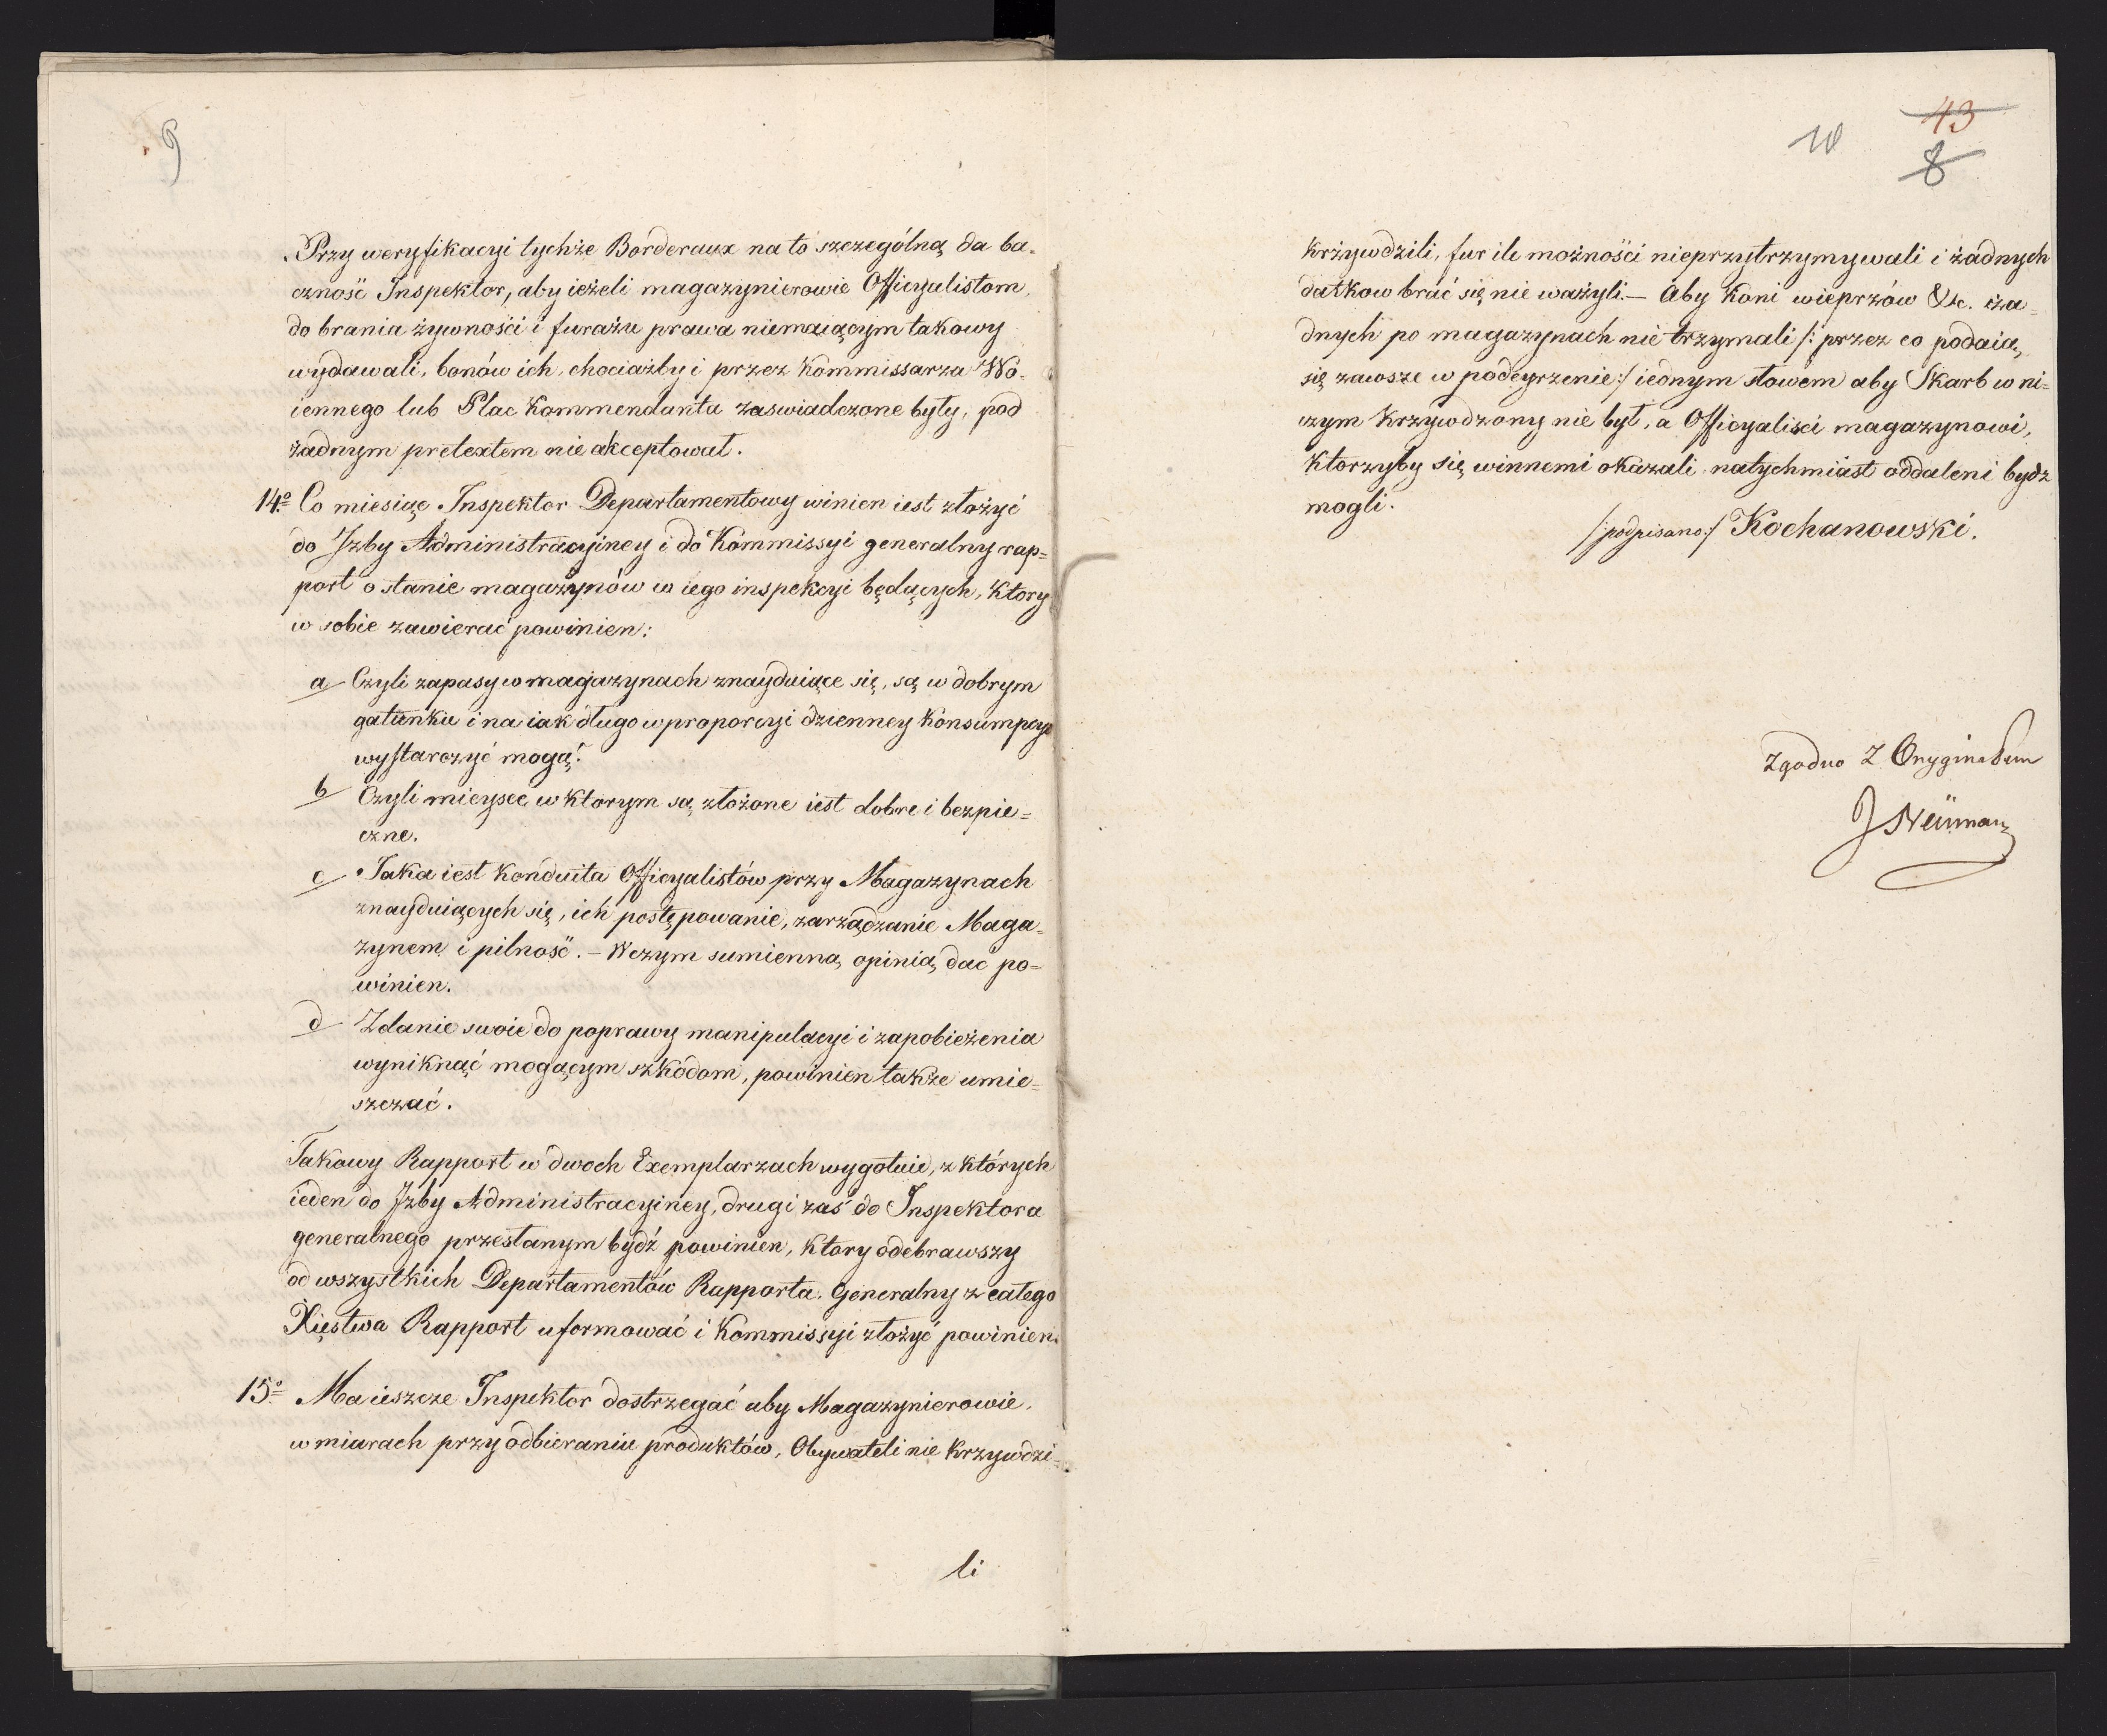 9
Przy weryfikacyi tychże Borderaux na to szczególną da ba-
czność Inspektor, aby ieżeli magazynierowie Officyalistom,
do brania żywności i furażu prawa niemaiącym takowy
wydawali, bonów ich, chociażby i przez Kommissarza Wo-
iennego lub Plac Kommendanta zaswiadczone były, pod
żadnym pretextem nie akceptował.
14o Co miesiąc Inspektor Departamentowy winien iest złożyć
do Izby Administracyiney i do Kommissyi generalny rap=
port o stanie magazynów w iego inspekcyi będących, ktory
w sobie zawierać powinien:
a Czyli zapasy w magazynach znayduiące się, są w dobrym
gatunku i na iak długo w proporcyi dzienney Konsumpcyi
wystarczyć mogą?
b Czyli mieysce w ktorym są złożone iest dobre i bezpie=
czne.
c Jaka iest konduita Officyalistów przy Magazynach
znayduiących się, ich postępowanie, zarządzanie Maga=
zynem i pilność. – W czym sumienną opinią dać po=
winien.
d Zdanie swoie do poprawy manipulacyi i zapobieżenia
wyniknąć mogącym szkodom, powinien także umie=
szczać.
Takowy Rapport w dwoch Exemplarzach wygotuie, z których
ieden do Izby Administracyiney, drugi zaś do Inspektora
generalnego przesłanym bydź powinien, ktory odebrawszy
od wszystkich Departamentów Rapporta. Generalny z całego
Xięstwa Rapport uformować i Kommissyi złożyć powinien.
15o Ma ieszcze Inspektor dostrzegać aby Magazynierowie,
w miarach przy odbieraniu produktów, Obywateli nie krzywdzi=
li
10
43
8
krzywdzili, fur ile możności nieprzytrzymywali i żadnych
datkow brać się nie ważyli. — Aby Koni wieprzów &c. ża=
dnych po magazynach nie trzymali /: przez co podaią
się zawsze w podeyrzenie :/ iednym słowem aby Skarb w ni=
czym Krzywdzony nie był, a Officyaliści magazynowi,
Ktorzyby się winnemi okazali natychmiast oddaleni bydz
mogli.
/:podpisano:/ Kochanowski.
Zgodno z Oryginałem
J Neüman